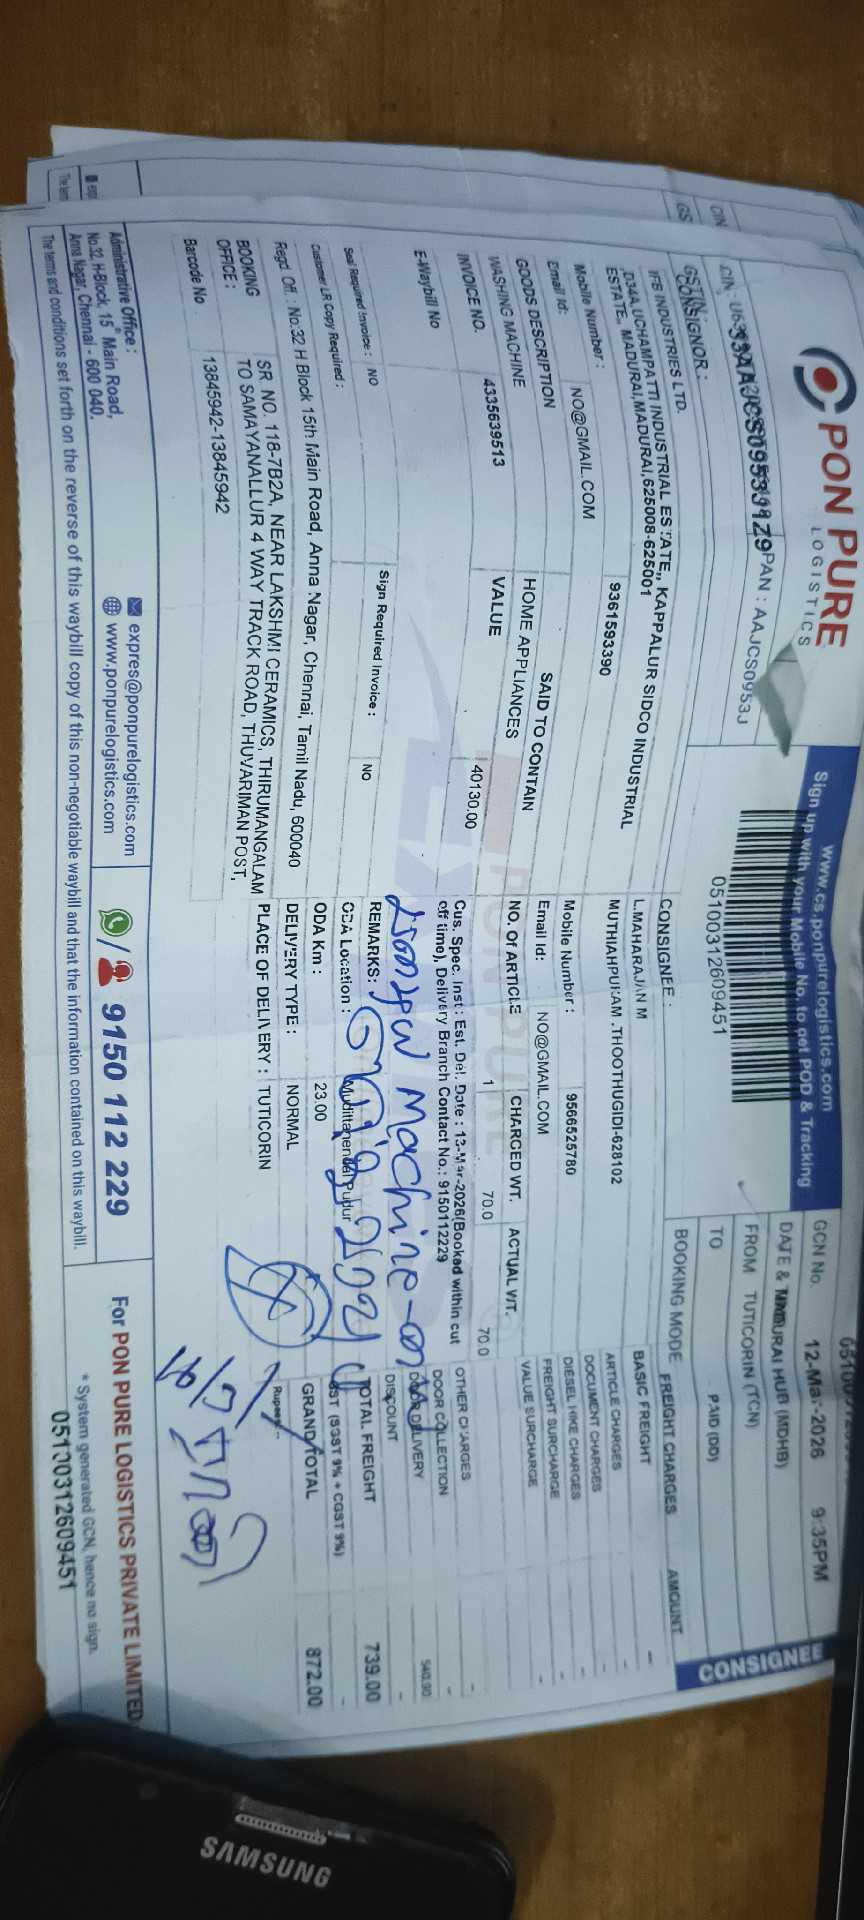 PON PURE
LOGISTICS
www.cs.ponpurelogistics.com
Sign up with your Mobile No. to get POD & Tracking
05100312609451
PAN : AAJCS0953J
GSTIN :
CONSIGNOR :
IFB INDUSTRIES LTD.
D34A,UCHAMPATTI INDUSTRIAL ESTATE,, KAPPALUR SIDCO INDUSTRIAL
ESTATE,, MADURAI,MADURAI,625008-625001
Mobile Number : 9361593390
Email Id: NO@GMAIL.COM
GOODS DESCRIPTION SAID TO CONTAIN
WASHING MACHINE HOME APPLIANCES
INVOICE NO. 4335639513 VALUE 40130.00
E-Waybill No
Seal Required Invoice : NO Sign Required Invoice : NO
Customer LR Copy Required :
Regd. Off. : No:32 H Block 15th Main Road, Anna Nagar, Chennai, Tamil Nadu, 600040
BOOKING OFFICE :
SR NO. 118-7B2A, NEAR LAKSHMI CERAMICS, THIRUMANGALAM
TO SAMAYANALLUR 4 WAY TRACK ROAD, THUVARIMAN POST,
Barcode No 13845942-13845942
CONSIGNEE :
L.MAHARAJAN M
MUTHIAHPURAM .THOOTHUGIDI-628102
Mobile Number : 9566525780
Email Id: NO@GMAIL.COM
NO. Of ARTICLE CHARGED WT. ACTUAL WT.
1 70.0 70.0
Cus. Spec. Inst : Est. Del. Date : 13-Mar-2026(Booked within cut
off time), Delivery Branch Contact No.: 9150112229
REMARKS:
ODA Location : Mudittanendal Pudur
ODA Km : 23.00
DELIVERY TYPE : NORMAL
PLACE OF DELIVERY : TUTICORIN
GCN No.
DATE & TIME 12-Mar-2026 9:35PM
FROM MADURAI HUB (MDHB)
TO TUTICORIN (TCN)
BOOKING MODE PAID (DD)
FREIGHT CHARGES AMOUNT
BASIC FREIGHT -
ARTICLE CHARGES -
DOCUMENT CHARGES -
DIESEL HIKE CHARGES -
FREIGHT SURCHARGE -
VALUE SURCHARGE -
OTHER CHARGES -
DOOR COLLECTION -
DOOR DELIVERY
DISCOUNT -
TOTAL FREIGHT 739.00
GST (SGST 9% + CGST 9%) -
GRAND TOTAL 872.00
Rupees --
CONSIGNEE
Machine
Administrative Office :
No.32, H-Block, 15th Main Road,
Anna Nagar, Chennai - 600 040.
expres@ponpurelogistics.com
www.ponpurelogistics.com
9150 112 229
For PON PURE LOGISTICS PRIVATE LIMITED
* System generated GCN, hence no sign.
05100312609451
The terms and conditions set forth on the reverse of this waybill copy of this non-negotiable waybill and that the information contained on this waybill.
SAMSUNG